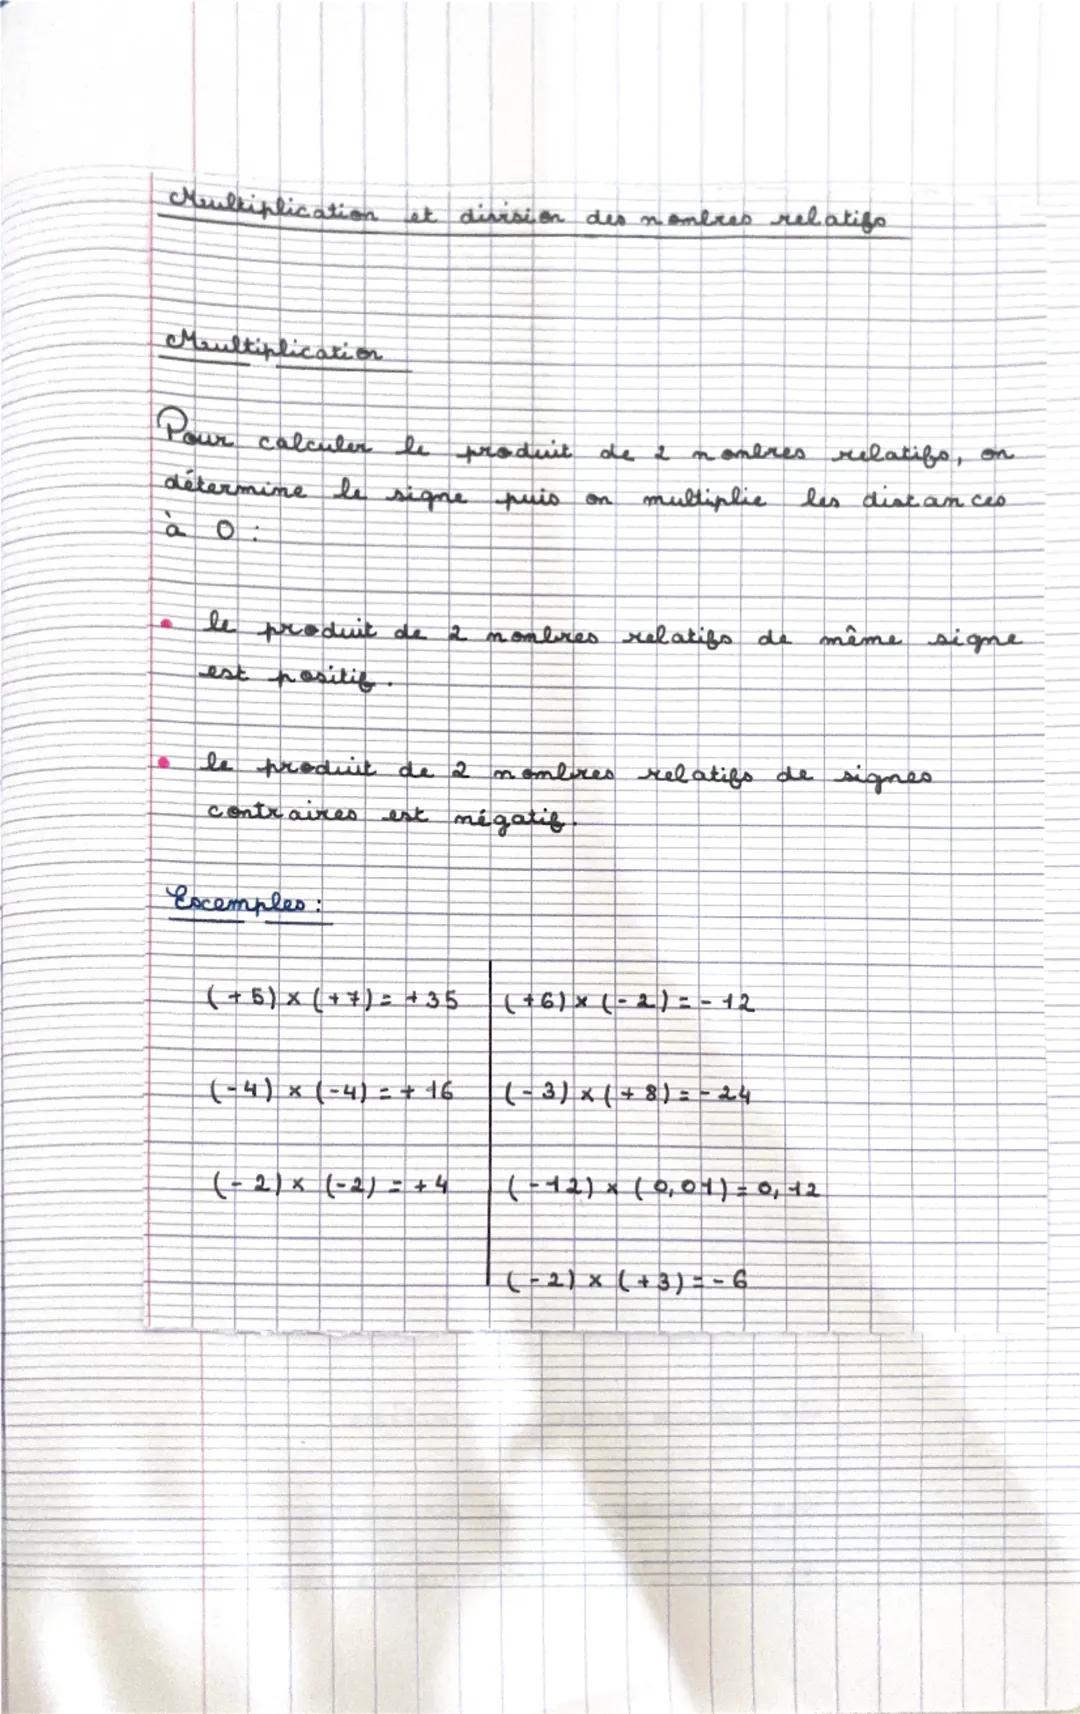 Multiplication et division des nombres relatifs
Multiplication
Pour calculer le produit de 2 nombres relatifs, on
détermine le signe puis on multiplie les distances
à 0 :
• le produit de 2 nombres relatifs de même signe
est positif.
• le produit de 2 nombres relatifs de signes
contraires est négatif.
Exemples :
(+5) × (+7) = +35
(-4) × (-4) = +16
(-2) × (-2) = +4
(+6) × (-2) = -12
(-3) × (+8) = -24
(-12) × (0,01) = 0,12
(-2) × (+3) = -6